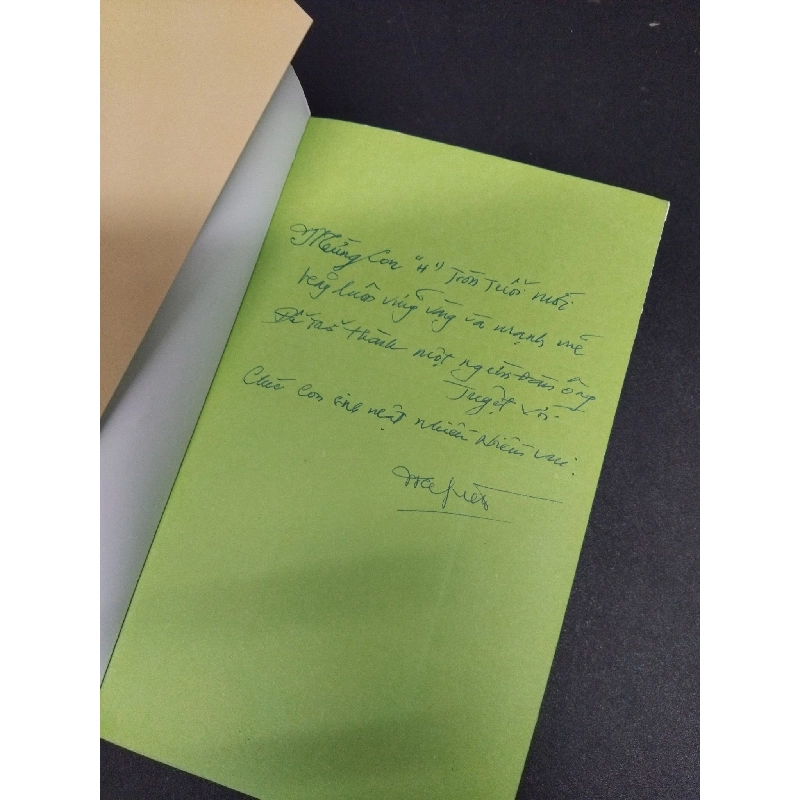 Mừng Con "H" tròn tuổi mới
luôn vững vàng và mạnh mẽ
Để trở thành một người đàn ông
Tuyệt vời
Chúc Con sinh nhật nhiều niềm vui.